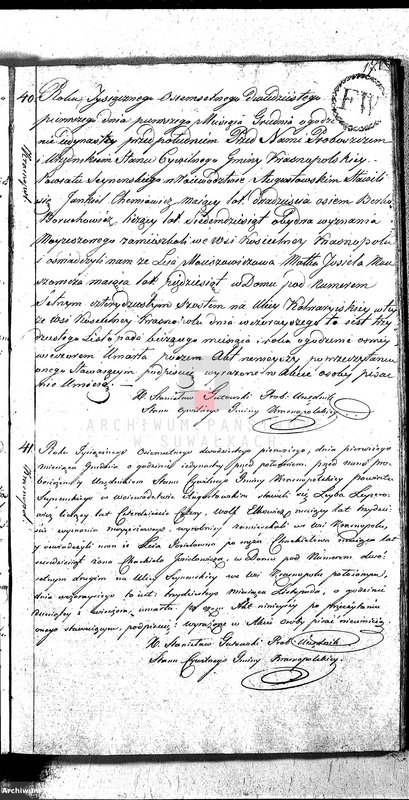 40.
Roku Tysiącznego Osiemsetnego Dwudziestego
pierwszego dnia pierwszego Miesiąca Grudnia o godzi-
nie jedynastey przed południem Przed Nami Proboszczem
Urzędnikiem Stanu Cywilnego Gminy Krasnopolskiey
Powiatu Seynenskiego w Województwie Augustowskim Stawili
się Jankiel maiący lat dwadzieścia osiem Berko
Boruchowicz liczący lat Siedemdziesiąt obydwa wyznania
Moyżeszowego zamieszkali we Wsi Kościelney Krasnopolu
i oświadczyli nam że Leia Matka Josiela
maiąca lat pięćdziesiąt w Domu pod Numerem
Setnym czterdziestym Szostym na Ulicy Kalwaryiskiey
we Wsi Kościelney Krasnopolu dnia wczorayszego to iest
Listopada bieżącego miesiąca i roku o godzinie osmey
wieczorem Umarła poczem Akt ninieyszy po przeczytaniu
onego Stawaiącym podpisany wyrażone w Akcie osoby pisać
nie Umieią.
X. Stanisław Gutowski Prob. Urzędnik
Stanu Cywilnego Gminy Krasnopolskiey
41.
Roku Tysiącznego Osiemsetnego dwudziestego pierwszego, dnia pierwszego
miesiąca Grudnia o godzinie jedynastey przed południem, przed nami Pro-
boszczem Urzędnikiem Stanu Cywilnego Gminy Krasnopolskiey powiatu
Seynenskiego w Województwie Augustowskim stawili się Leyba
liczący lat Czterdzieście Cztery, Wolf maiący lat trzydzie-
ści wyznania moyżeszowego, wyrobnicy zamieszkali we Wsi Krasnopolu,
y oświadczyli nam iż Leia po mężu maiąca lat
siedmdziesiąt żona w Domu pod Numerem dwó-
setnym drugim na Ulicy Seynenskiey we Wsi Krasnopolu położonym,
dnia wczorayszego to iest trzydziestego miesiąca Listopada, o godzinie
dziewiątey z wieczora, umarła, po czym Akt ninieyszy po przeczytaniu
onego stawaiącym, podpisany, wyrażone w Akcie osoby pisać nieumieią
X. Stanisław Gutowski Prob. Urzędnik
Stanu Cywilnego Gminy Krasnopolskiey.
FW
ARCHIWUM PAŃSTWOWE
W SUWAŁKACH
Archiwum